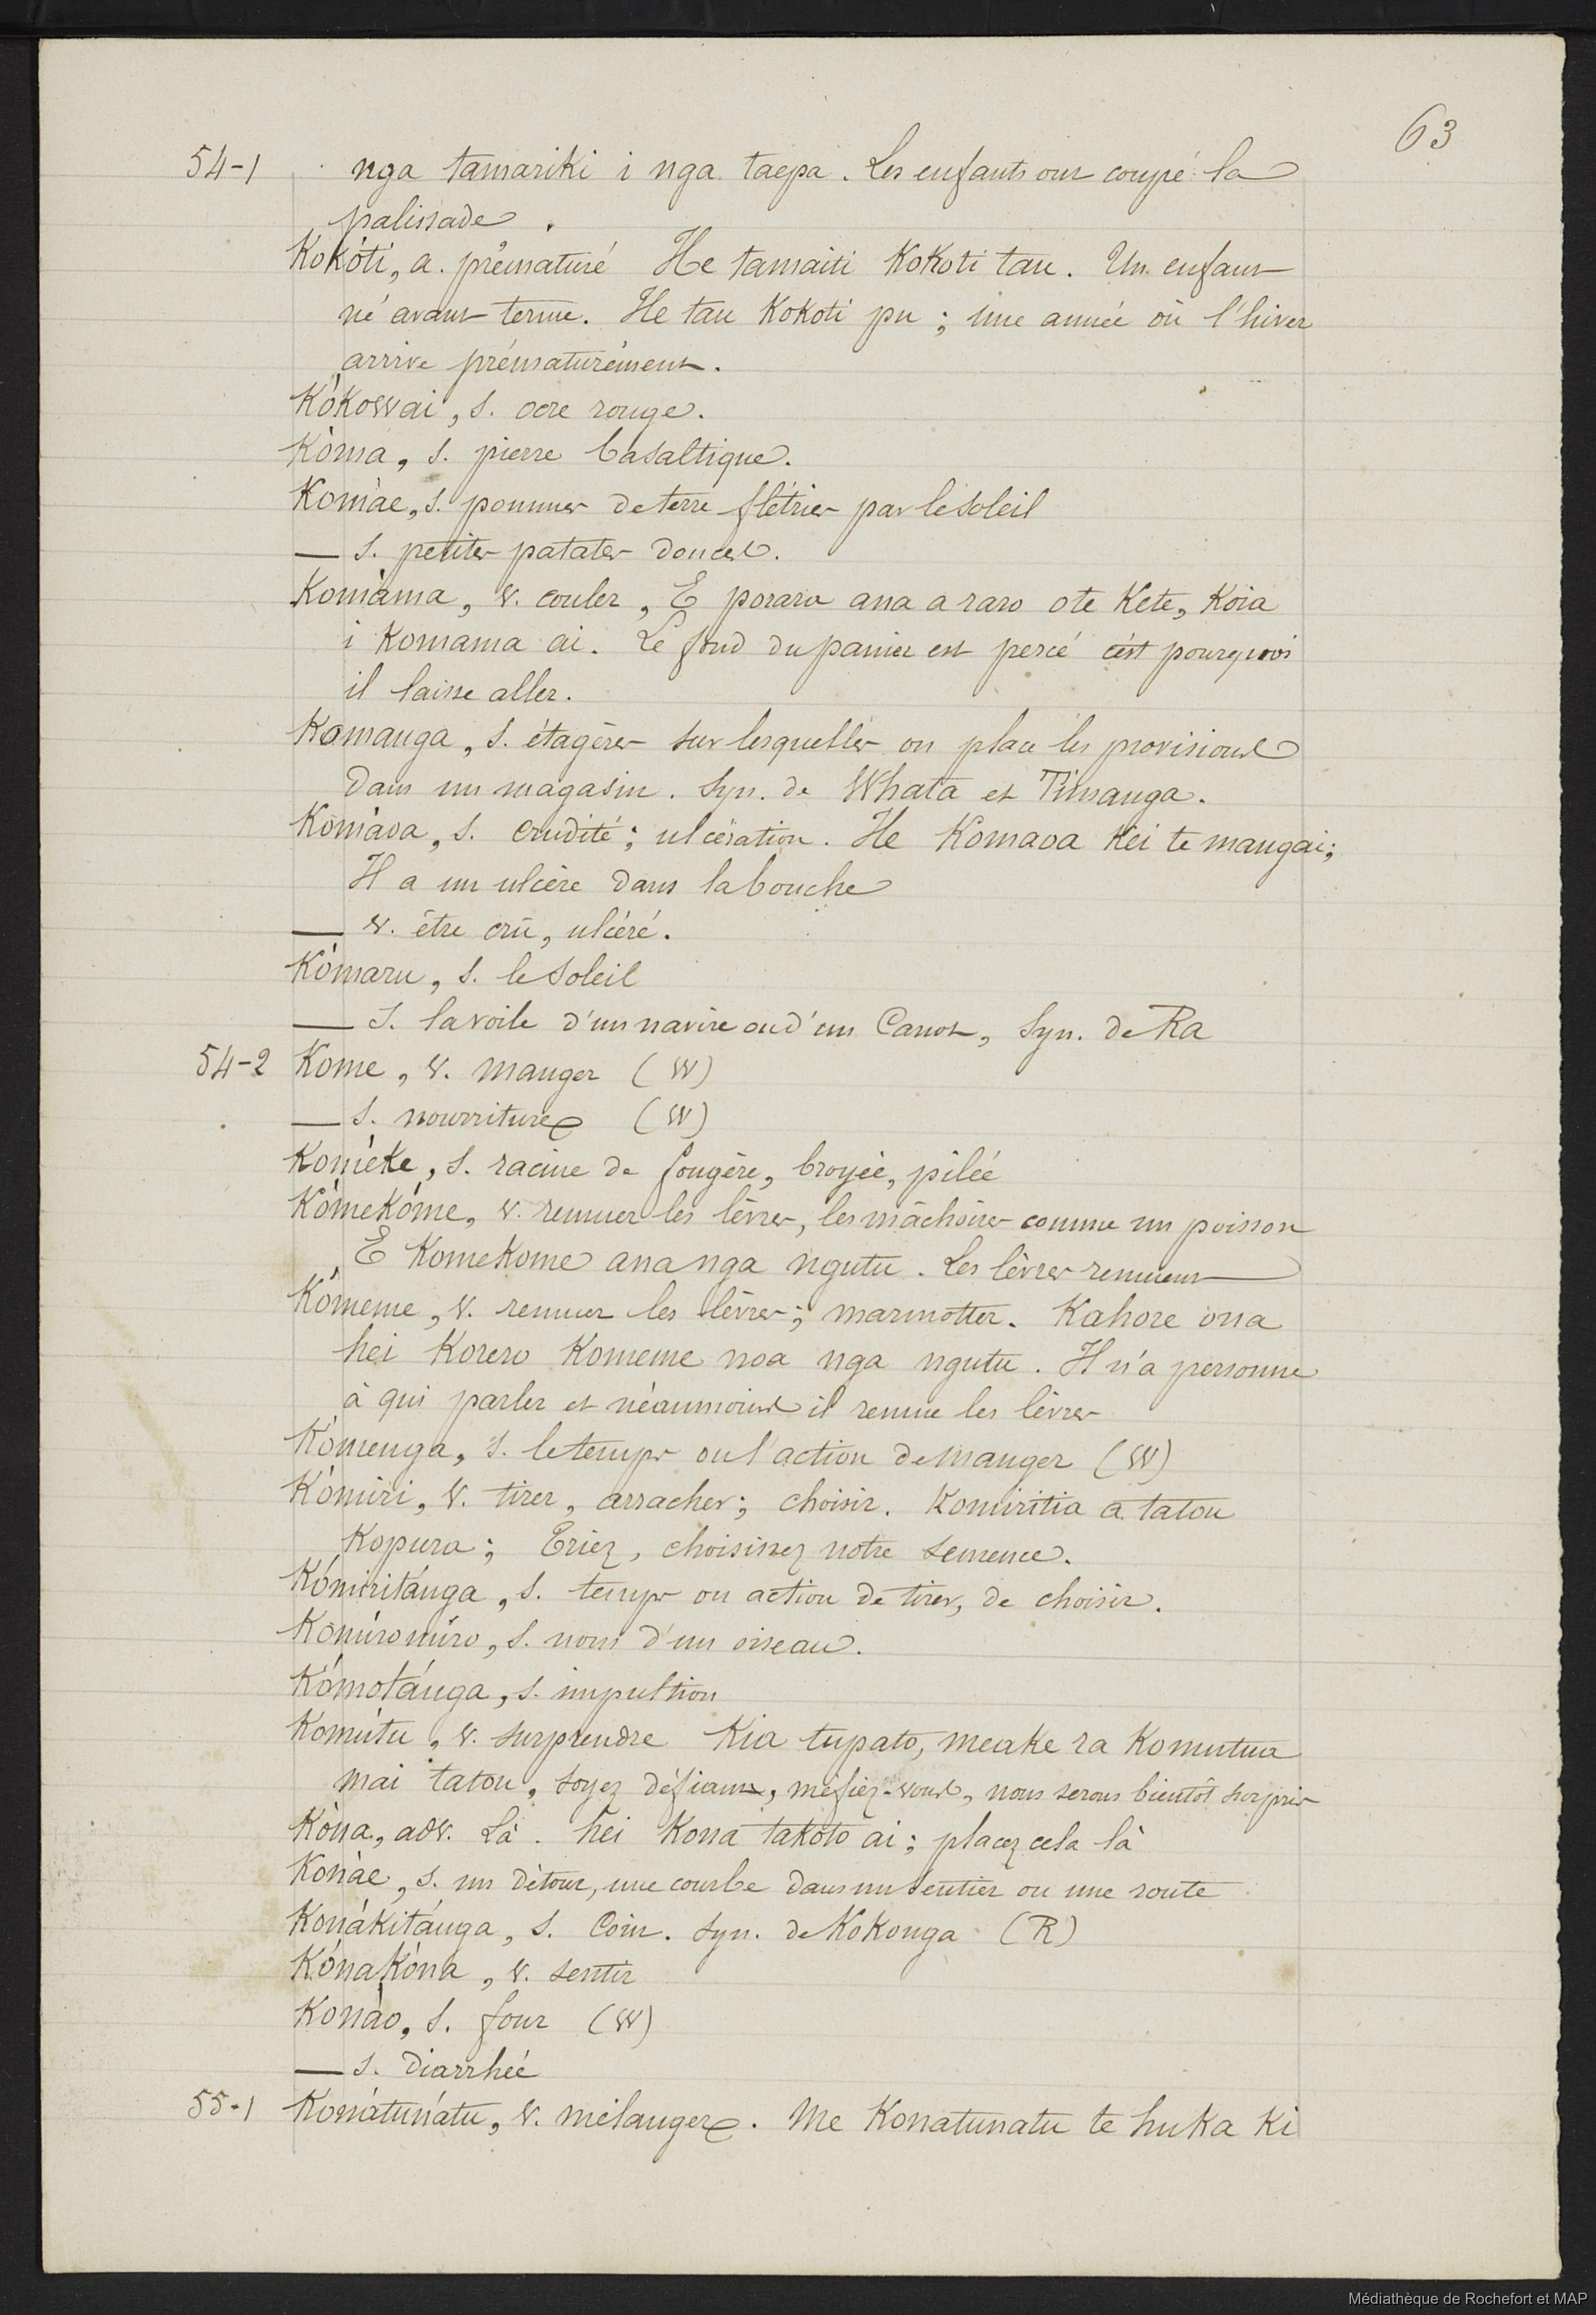 63
54-1 nga tamariki i nga taepa. Les enfants ont coupé la
palissade.
Kokóti, a. prématuré He tamaiti Kokoti tau. Un enfant
né avant terme. He tau Kokoti pu ; une année où l'hiver
arrive prématurément.
Kókowai, s. ocre rouge.
Kòma, s. pierre basaltique.
Komàe, s. pommes de terre flétries par le soleil
— s. petites patates douces.
Komàma, v. couler, E poraru ana a raro o te Kete, Koia
i Komama ai. Le fond du panier est percé c'est pourquoi
il laisse aller.
Komanga, s. étagères sur lesquelles on place les provisions
dans un magasin. Syn. de Whata et Timanga.
Komàoa, s. crudité ; ulcération. He Komaoa Kei te mangai ;
Il a un ulcère dans la bouche
— v. être crû, ulcéré.
Kómaru, s. le soleil
— s. la voile d'un navire ou d'un Canot, Syn. de Ra
54-2 Kome, v. manger (W)
— s. nourriture (W)
Komèke, s. racine de fougère, broyée, pilée
Kómekóme, v. remuer les lèvres, les mâchoires comme un poisson
E KomeKome ana nga ngutu. Les lèvres remuent
Kómeme, v. remuer les lèvres ; marmotter. Kahore ona
hei Korero Komeme noa nga ngutu. Il n'a personne
à qui parler et néanmoins il remue les lèvres
Kómenga, s. le temps ou l'action de manger (W)
Kómiri, v. tirer, arracher ; choisir. Komiritia a tatou
Kopura ; Triez, choisissez notre semence.
Kómiritánga, s. temps ou action de tirer, de choisir.
Komíromíro, s. nom d'un oiseau.
Kómotánga, s. impulsion
Komútu, v. surprendre Kia tupato, meake ra Komutua
mai tatou, soyez défiants, méfiez-vous, nous serons bientôt surpris
Kòna, adv. Là. hei Kona takoto ai ; placez cela là
Konàe, s. un détour, une courbe dans un sentier ou une route
Konákitánga, s. Coin. Syn. de Kokonga (R)
Kónakóna, v. sentir
Konào, s. four (W)
— s. Diarrhée
55-1 Konátunátu, v. mélanger. Me Konatunatu te huka Ki
Médiathèque de Rochefort et MAP